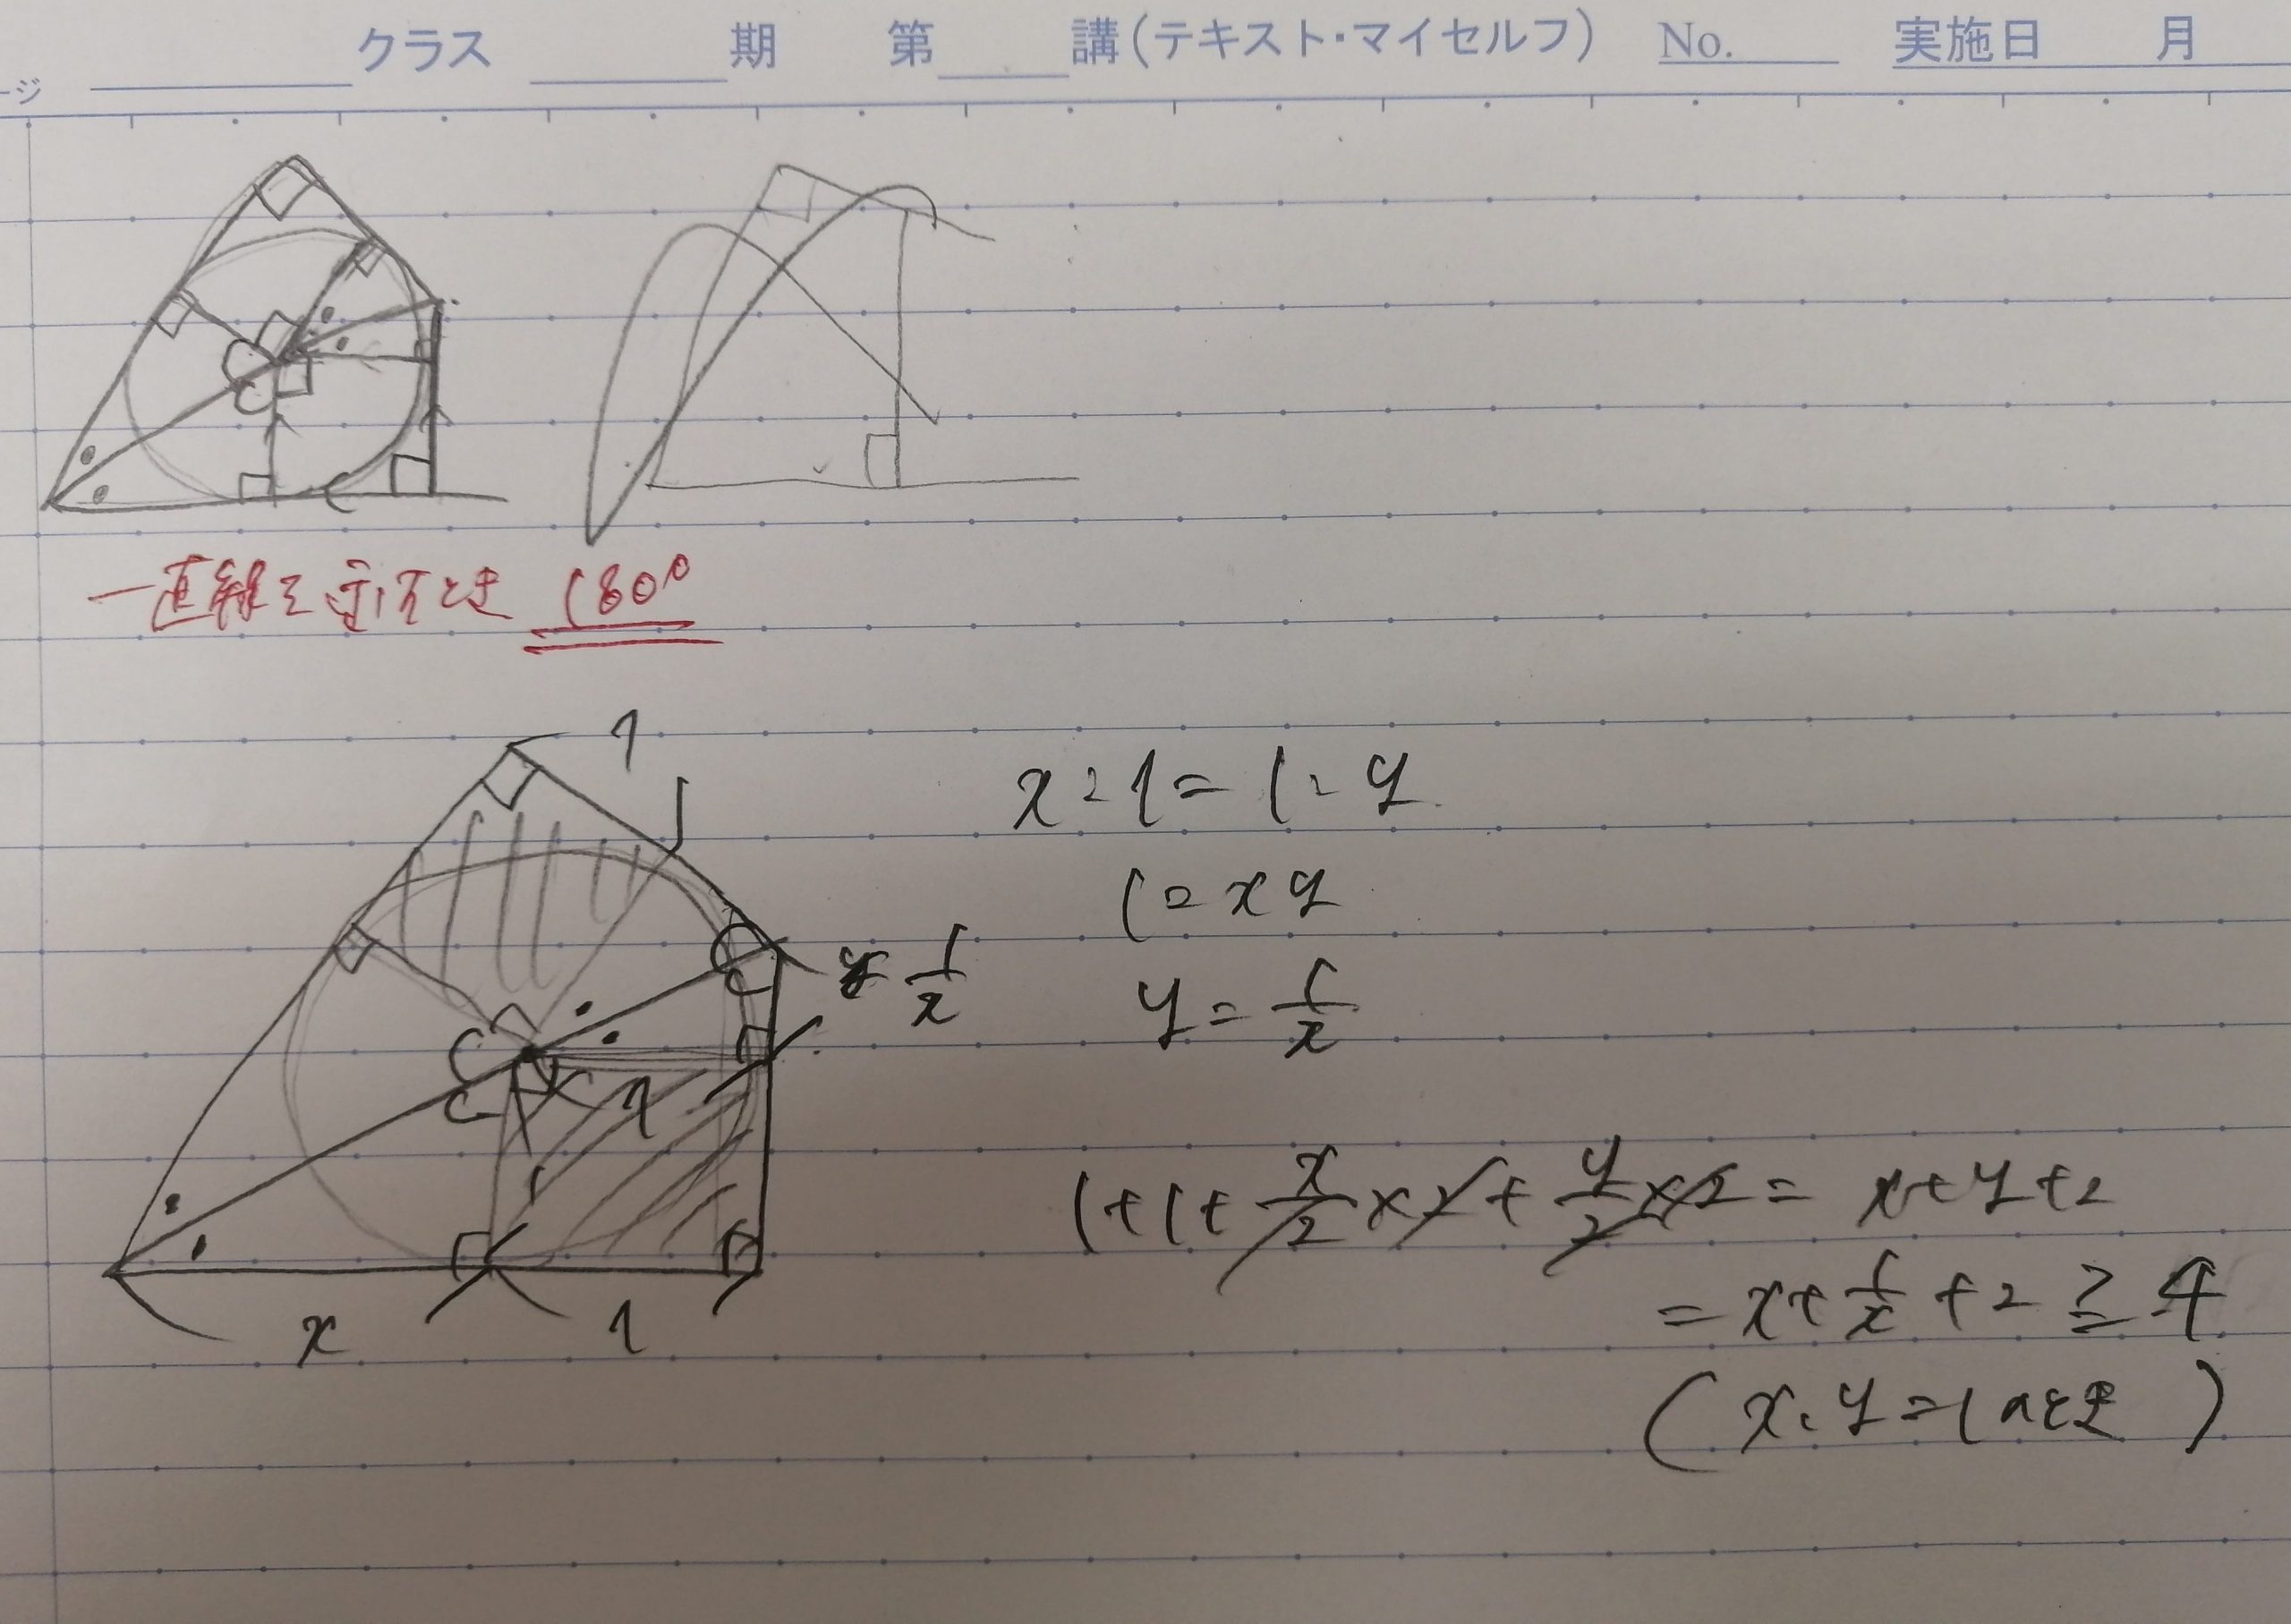 クラス 期 第 講(テキスト・マイセルフ) No. 実施日 月
ージ
一直線を示すとき 180°
1
x:1=1:y
1=xy
1/x
y=1/x
1
1+1+x/2×2+y/2×2=x+y+2
=x+1/x+2≧4
x 1
(x,y=1のとき)